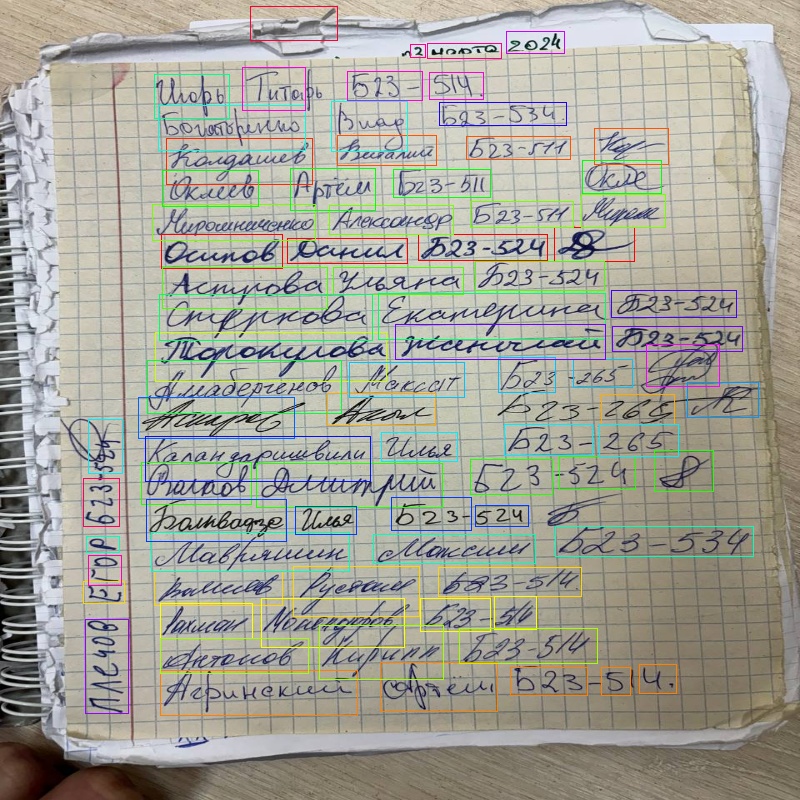 12 марта 2024
Игорь Титарь Б23-514.
Богатыренко Влад Б23-534.
Колдашев Виталий Б23-511
Оклеев Артём Б23-511 Окле
Мирошниченко Александр Б23-511
Осипов Данил Б23-524
Астрова Ульяна Б23-524
Стернова Екатерина Б23-524
Торокулова Б23-524
Максат Б23-265
Б23-265
Каландаришвили Илья Б23-265
Дмитрий Б23-524
Болквадзе Илья Б23-524
Мавряшин Максим Б23-534
Рустам Б23-514.
Рахман Б23-514
Антонов Кирилл Б23-514
Агринский Артём Б23-514.
Плечов ЕГОР Б23-524